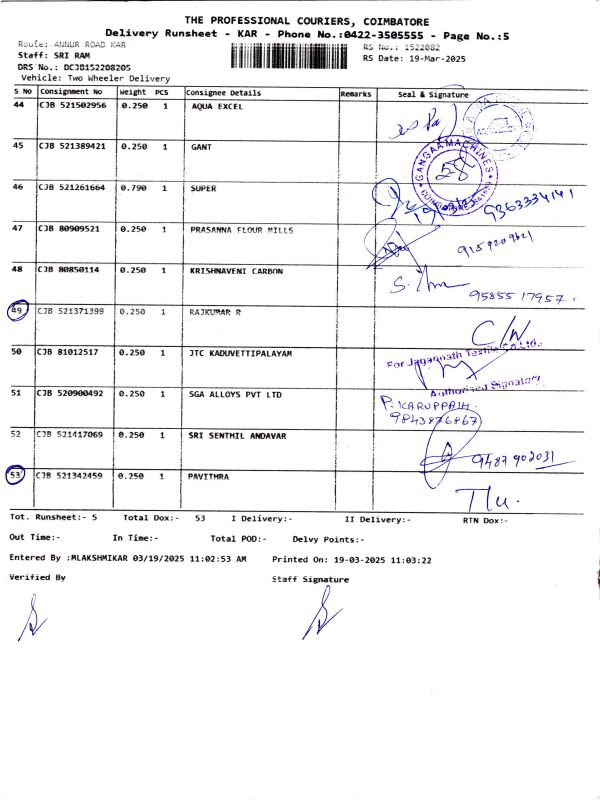 THE PROFESSIONAL COURIERS, COIMBATORE
Delivery Runsheet - KAR - Phone No.:0422-3505555 - Page No.:5
Route: ANNUR ROAD KAR
RS No.: 1522082
Staff: SRI RAM
RS Date: 19-Mar-2025
DRS No.: DCJB152208205
Vehicle: Two Wheeler Delivery
S NO Consignment No Weight PCS Consignee Details Remarks Seal & Signature
44 CJB 521502956 0.250 1 AQUA EXCEL
45 CJB 521389421 0.250 1 GANT
GANGAA MACHINES
58
46 CJB 521261664 0.790 1 SUPER
9363334141
47 CJB 80909521 0.250 1 PRASANNA FLOUR MILLS
48 CJB 80850114 0.250 1 KRISHNAVENI CARBON
95855 17957
49 CJB 521371399 0.250 1 RAJKUMAR R
C/N
50 CJB 81012517 0.250 1 JTC KADUVETTIPALAYAM
For Jagannath Textile Co.Ltd.,
Authorised Signatory
51 CJB 520900492 0.250 1 SGA ALLOYS PVT LTD
P. KARUPPAIH
9843876867
52 CJB 521417069 0.250 1 SRI SENTHIL ANDAVAR
9487902031
53 CJB 521342459 0.250 1 PAVITHRA
Tot. Runsheet:- 5 Total Dox:- 53 I Delivery:- II Delivery:- RTN Dox:-
Out Time:- In Time:- Total POD:- Delvy Points:-
Entered By :MLAKSHMIKAR 03/19/2025 11:02:53 AM Printed On: 19-03-2025 11:03:22
Verified By Staff Signature